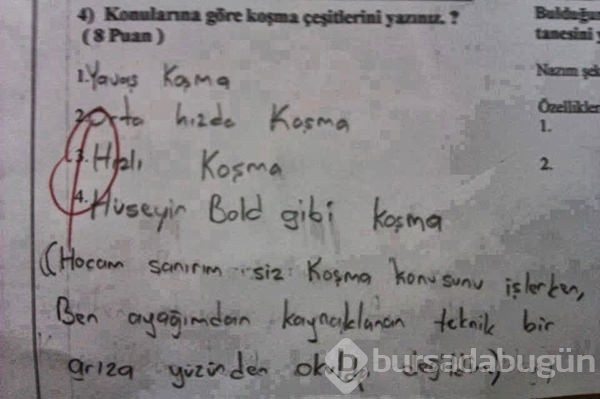 4) Konularına göre koşma çeşitlerini yazınız. ?
( 8 Puan )
1. Yavaş Koşma
2. Orta hızda Koşma
3. Hızlı Koşma
4. Hüseyin Bold gibi koşma
((Hocam sanırım siz Koşma konusunu işlerken,
Ben ayağımdan kaynaklanan teknik bir
arıza yüzünden
bursadabugün
Bulduğun
tanesini y
Nazım şek
Özellikler
1.
2.